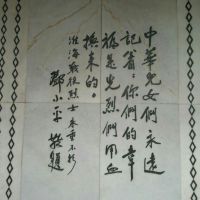 中華兒女們永遠
記着：你們的幸
福是先烈們用血
換來的。
淮海戰役烈士永垂不朽
鄧小平 敬題